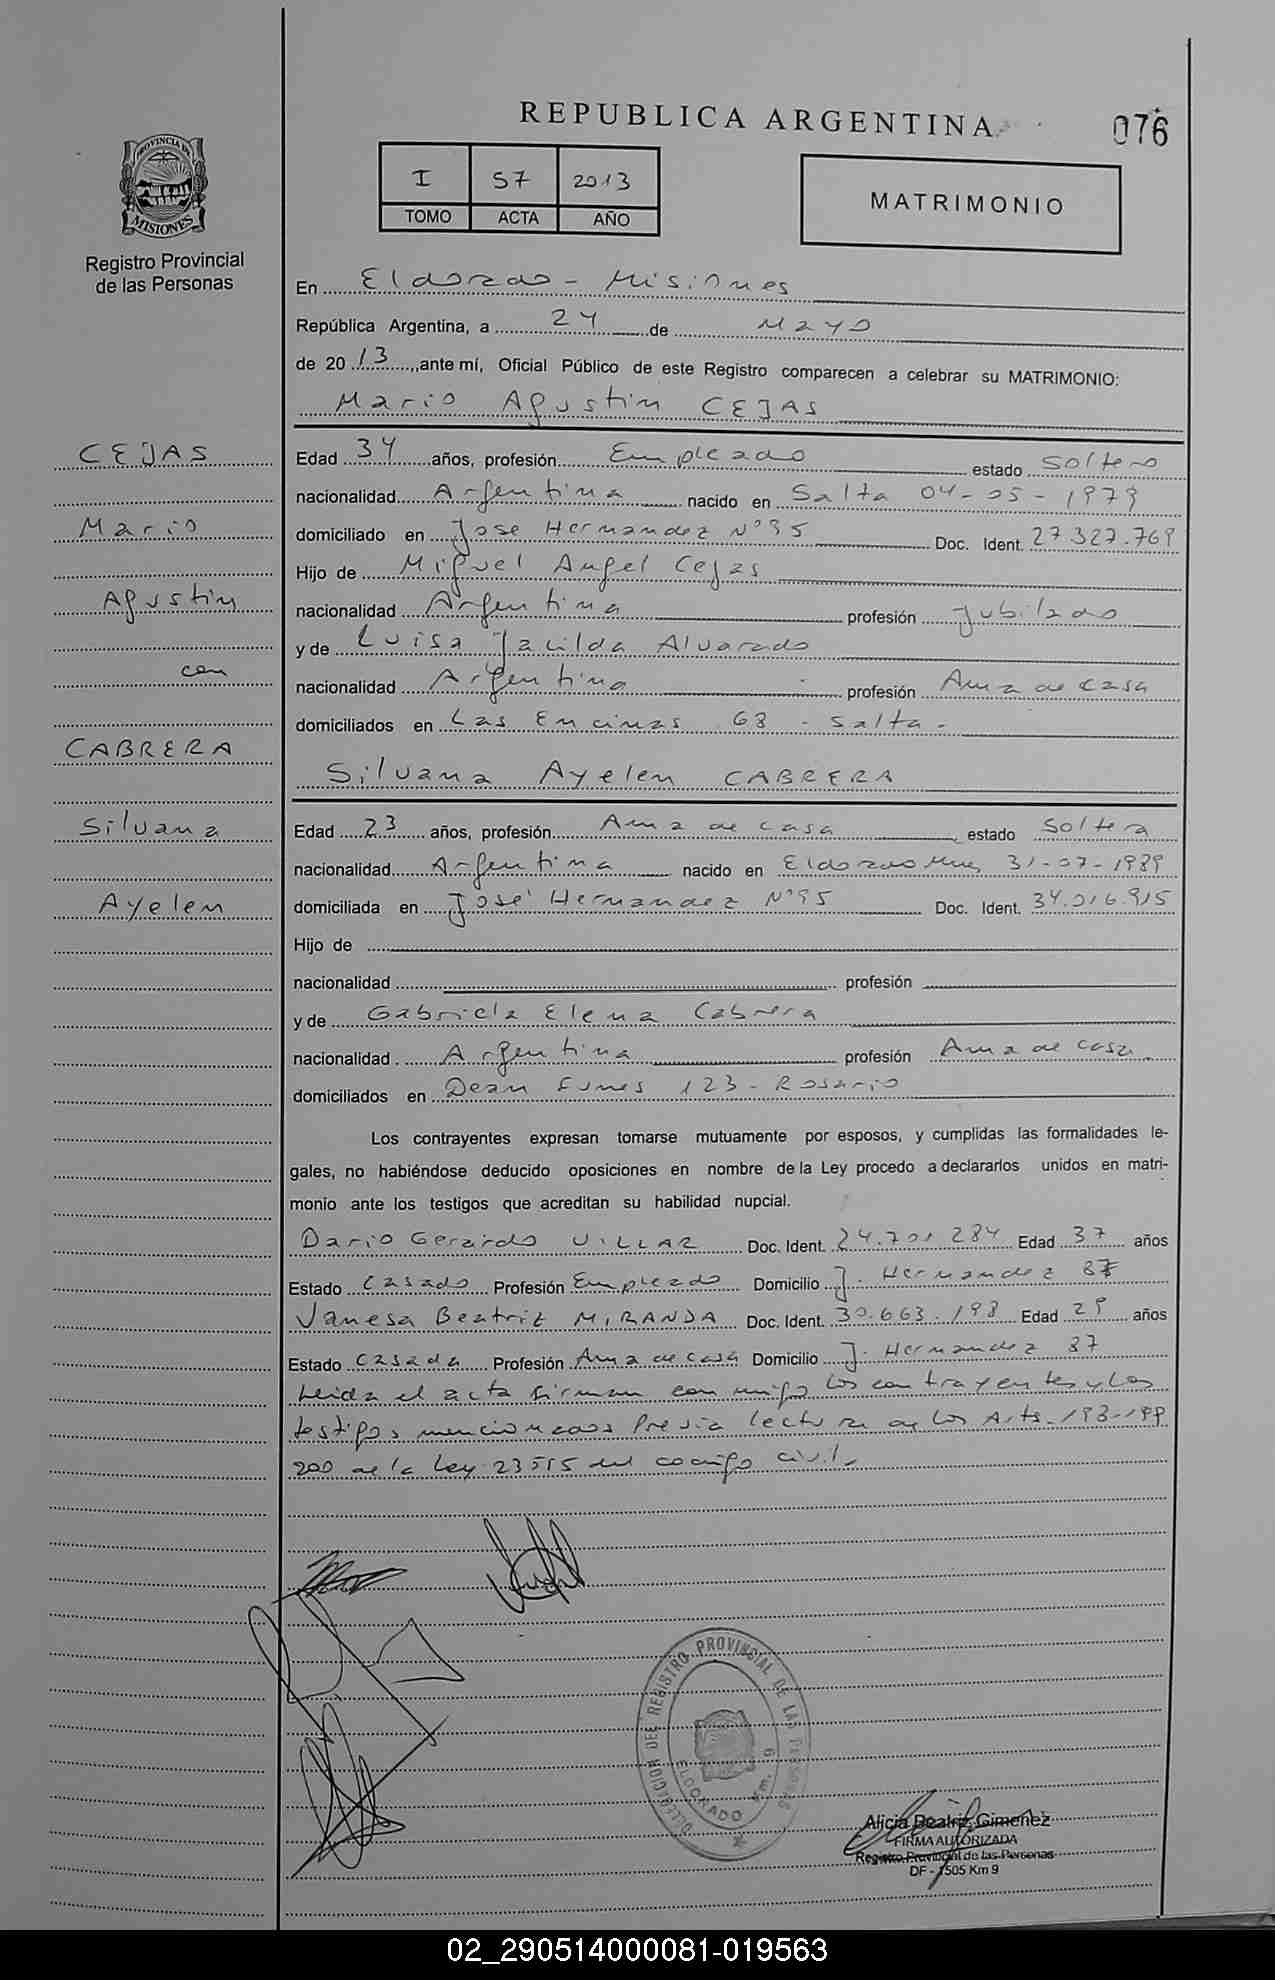 REPUBLICA ARGENTINA
076
PROVINCIA DE
MISIONES
Registro Provincial
de las Personas
I 57 2013
TOMO ACTA AÑO
MATRIMONIO
En Eldorado - Misiones
República Argentina, a 24 de Mayo
de 2013, ante mí, Oficial Público de este Registro comparecen a celebrar su MATRIMONIO:
Mario Agustin CEJAS
CEJAS
Mario
Agustin
con
CABRERA
Silvana
Ayelen
Edad 34 años, profesión Empleado estado soltero
nacionalidad Argentina nacido en Salta 04-05-1979
domiciliado en Jose Hernandez N°95 Doc. Ident. 27.327.769
Hijo de Miguel Angel Cejas
nacionalidad Argentina profesión Jubilado
y de Luisa Alvarado
nacionalidad Argentina profesión Ama de casa
domiciliados en Las Encinas 68 - Salta -
Silvana Ayelen CABRERA
Edad 23 años, profesión Ama de casa estado soltera
nacionalidad Argentina nacido en Eldorado 31-07-1989
domiciliada en José Hernandez N°95 Doc. Ident. 34.016.915
Hijo de
nacionalidad profesión
y de Gabriela Elena Cabrera
nacionalidad Argentina profesión Ama de casa
domiciliados en Dean Funes 123 - Rosario
Los contrayentes expresan tomarse mutuamente por esposos, y cumplidas las formalidades le-
gales, no habiéndose deducido oposiciones en nombre de la Ley procedo a declararlos unidos en matri-
monio ante los testigos que acreditan su habilidad nupcial.
Dario Gerardo VILLAR Doc. Ident. 24.701.284 Edad 37 años
Estado Casado Profesión Empleado Domicilio J. Hernandez 87
Vanesa Beatriz MIRANDA Doc. Ident. 30.663.198 Edad 29 años
Estado Casada Profesión Ama de casa Domicilio J. Hernandez 87
Leida el acta firman conmigo los contrayentes y los
testigos mencionados Previa lectura de los Arts. 198-199
200 de la Ley 23515 del codigo civil.
DELEGACION DEL REGISTRO PROVINCIAL DE LAS PERSONAS
ELDORADO Km. 9
Alicia Beatriz Gimenez
FIRMA AUTORIZADA
Registro Provincial de las Personas
DF - 1505 Km 9
02_290514000081-019563